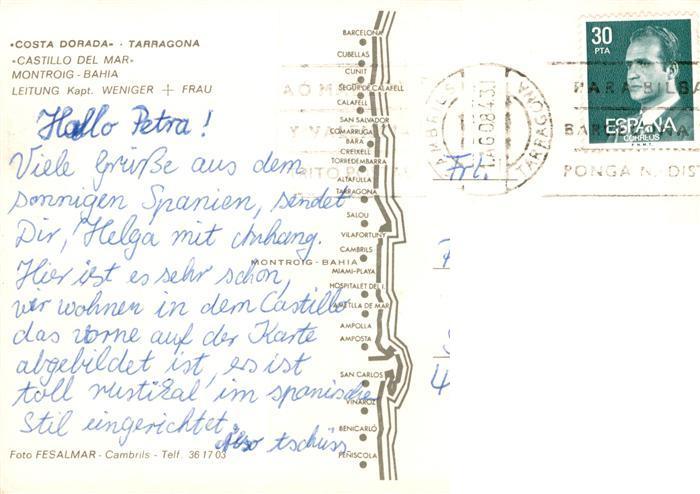 «COSTA DORADA» · TARRAGONA
«CASTILLO DEL MAR»
MONTROIG - BAHIA
LEITUNG Kapt. WENIGER + FRAU
Hallo Petra!
Viele Grüße aus dem
sonnigen Spanien, sendet
Dir, Helga mit Anhang.
Hier ist es sehr schön,
wir wohnen in dem Castillo
das vorne auf der Karte
abgebildet ist, es ist
toll rustikal im spanischen
Stil eingerichtet.
Also tschüss
Foto FESALMAR - Cambrils - Telf. 36 17 03
BARCELONA
CUBELLAS
CUNIT
SEGUR DE CALAFELL
CALAFELL
SAN SALVADOR
COMARRUGA
BARA
CREIXELL
TORREDEMBARRA
ALTAFULLA
TARRAGONA
SALOU
VILAFORTUNY
CAMBRILS
MONTROIG - BAHIA
MIAMI-PLAYA
HOSPITALET DEL I.
AMETLLA DE MAR
AMPOLLA
AMPOSTA
SAN CARLOS
VINAROZ
BENICARLÓ
PEÑISCOLA
30
PTA
ESPAÑA
CORREOS
F.N.M.T.
CAMBRILS
TARRAGONA
PONGA N. DIST
Frl.
4